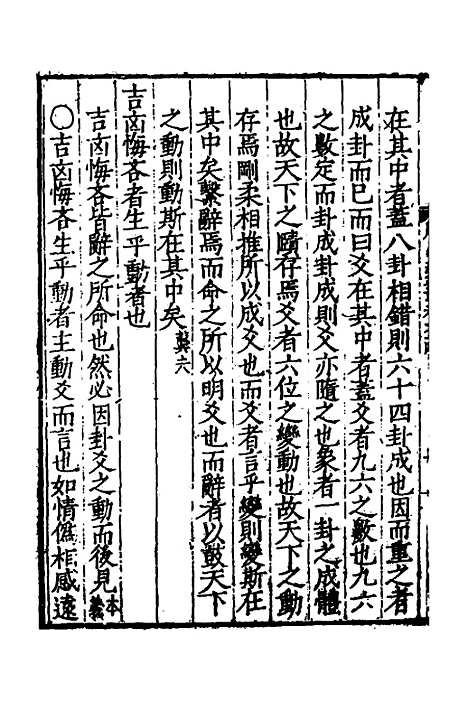 在其中者蓋八卦相錯則六十四卦成也因而重之者
成卦而已而曰爻在其中者蓋爻者九六之數也九六
之數定而卦成卦成則爻亦隨之也象者一卦之成體
也故天下之賾存焉爻者六位之變動也故天下之動
存焉剛柔相推所以成爻也而爻者言乎變則變斯在
其中矣繫辭焉而命之所以明爻也而辭者以鼓天下
之動則動斯在其中矣龔六
吉凶悔吝者生乎動者也
吉凶悔吝皆辭之所命也然必因卦爻之動而後見本義
○吉凶悔吝生乎動者主動爻而言也如情僞相感遠